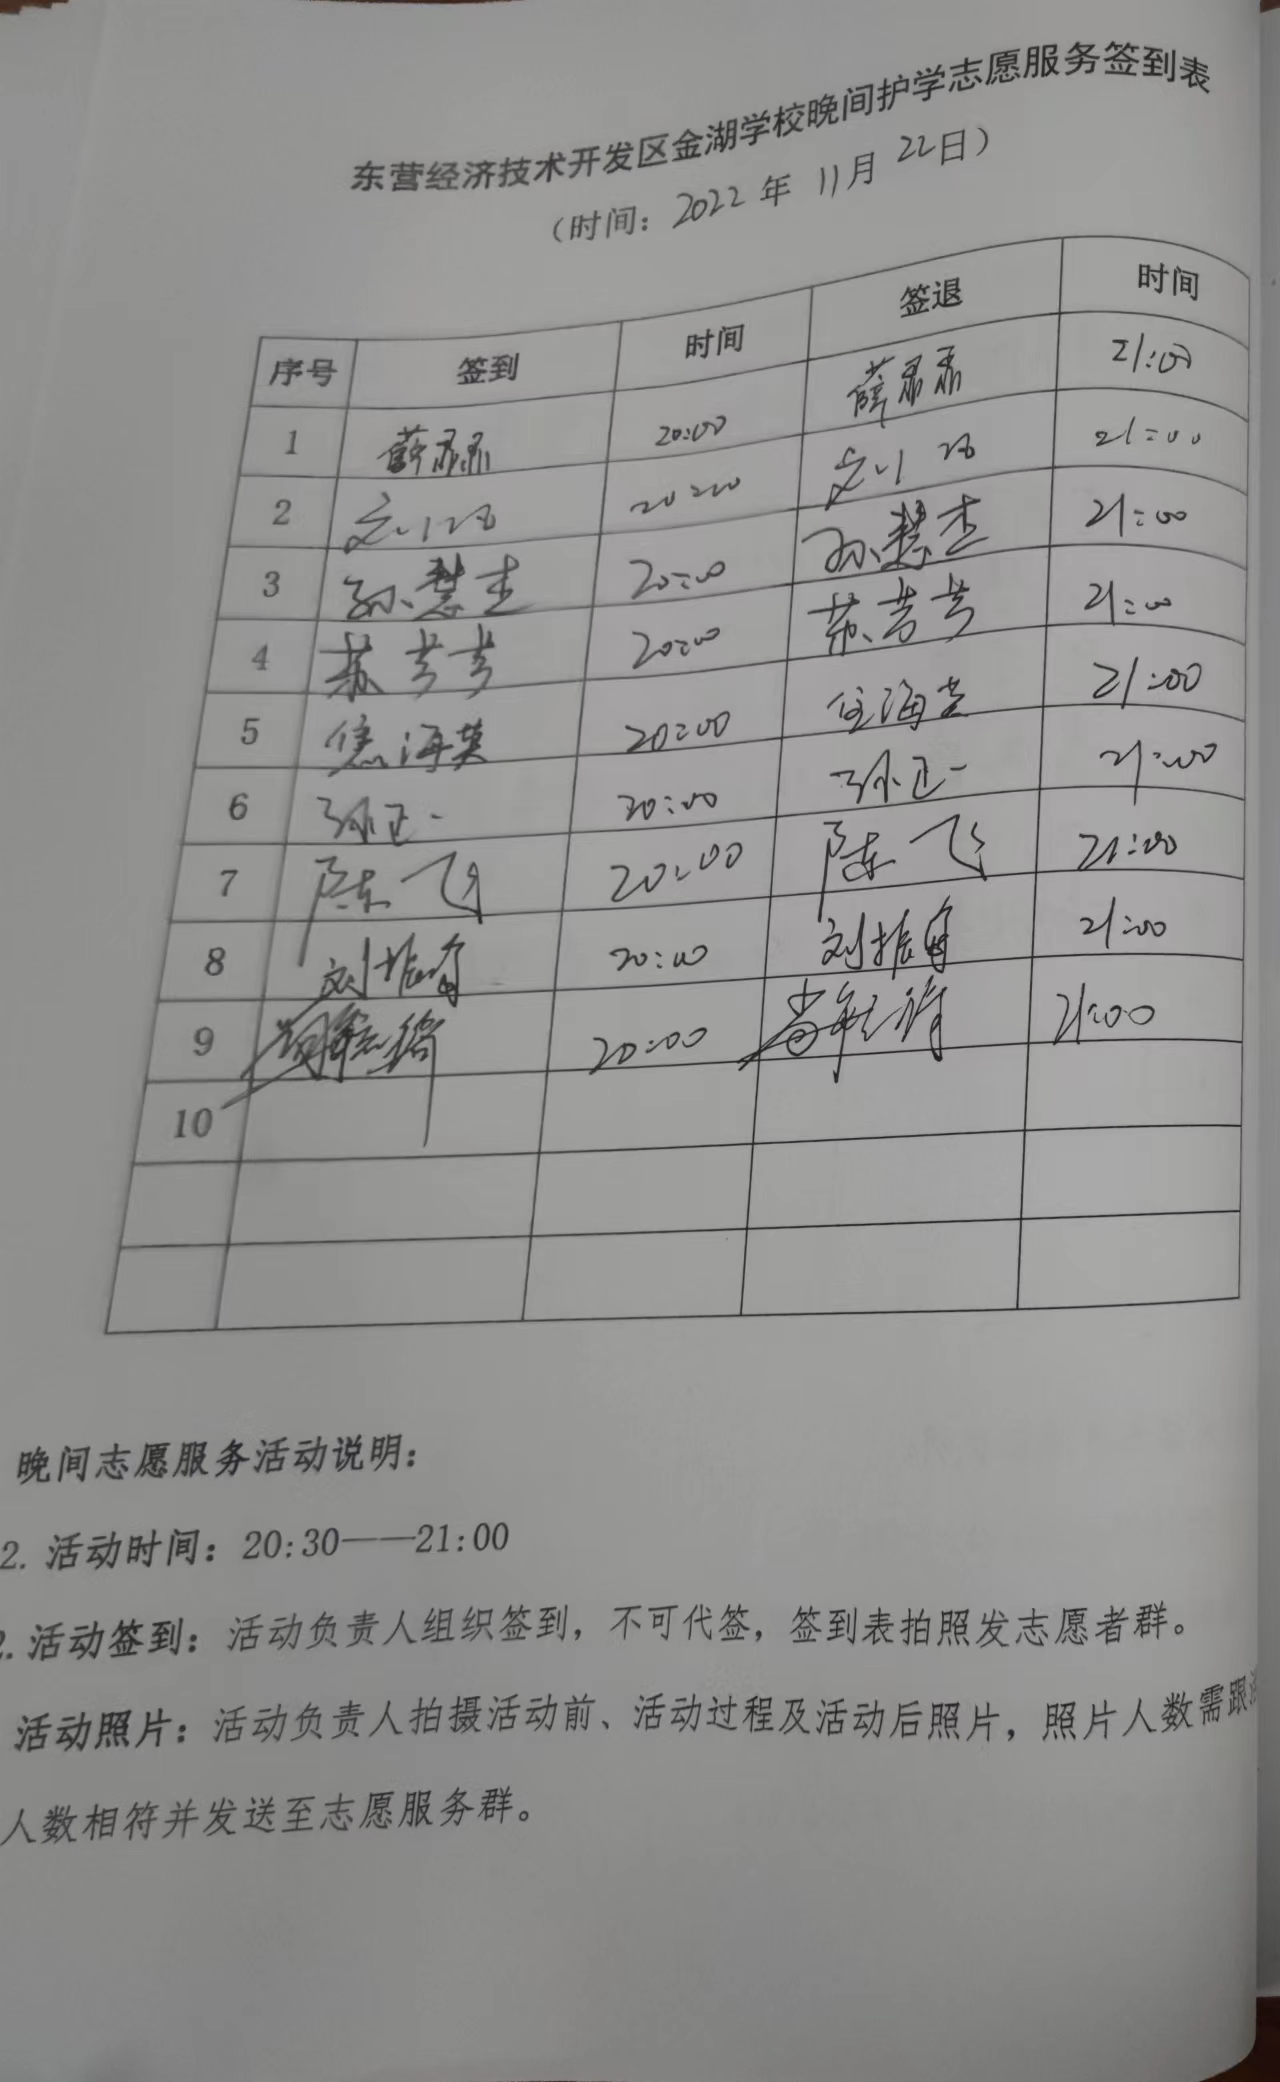 东营经济技术开发区金湖学校晚间护学志愿服务签到表
（时间：2022年 11月 22日）
序号 签到 时间 签退 时间
1 薛磊磊 20:00 薛磊磊 21:00
2 20:00 21:00
3 孙慧杰 20:00 孙慧杰 21:00
4 苏芳芳 20:00 苏芳芳 21:00
5 焦海英 20:00 焦海英 21:00
6 孙正一 20:00 孙正一 21:00
7 陈飞 20:00 陈飞 21:00
8 刘振 20:00 刘振 21:00
9 20:00 21:00
10
晚间志愿服务活动说明：
2. 活动时间：20:30——21:00
2. 活动签到：活动负责人组织签到，不可代签，签到表拍照发志愿者群。
活动照片：活动负责人拍摄活动前、活动过程及活动后照片，照片人数需跟
人数相符并发送至志愿服务群。